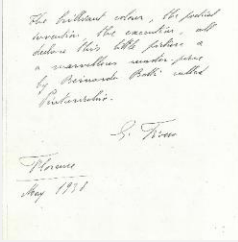 The brilliant colour, the poetical
invention, the execution, all
declare this little picture a
marvellous master piece
by Bernardo Betti called
Pinturicchio.
G. Fiocco
Florence
May 1938